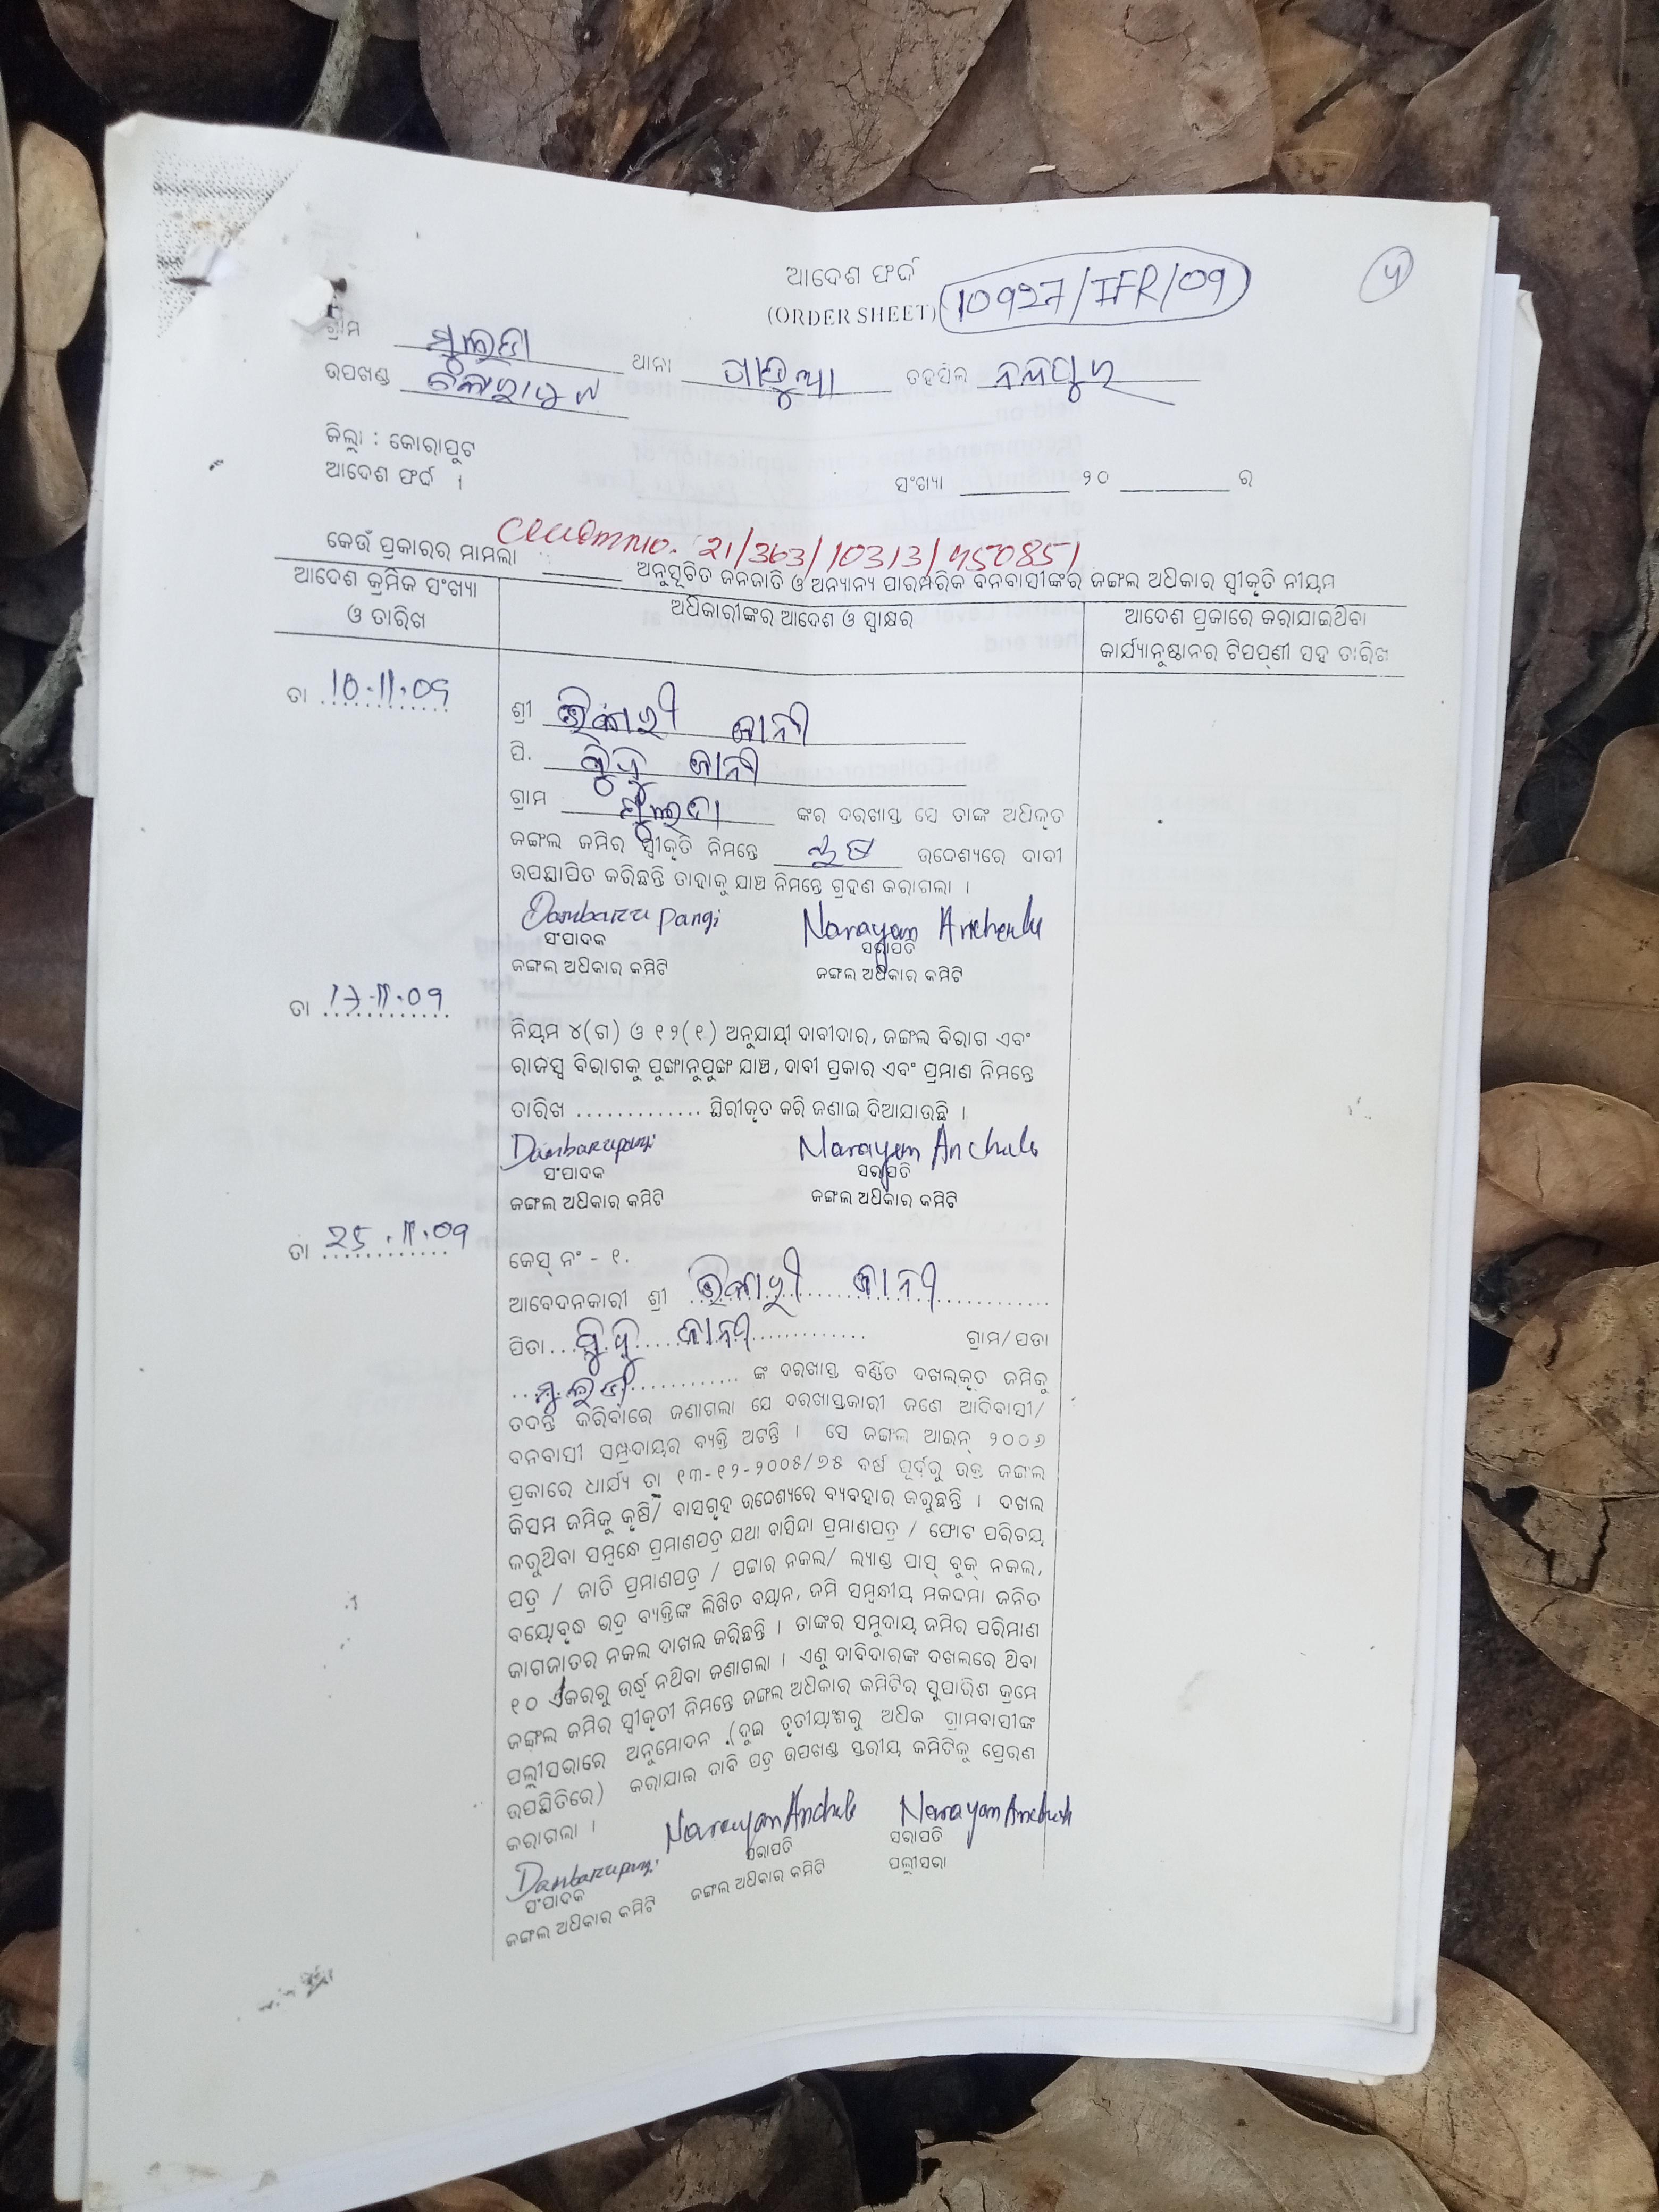 ଆଦେଶ ଫର୍ଦ୍ଦ
(ORDER SHEET) 10927/IFR/09
ଗ୍ରାମ ମୁଲେଡା ଥାନା ପାଡୁଆ ତହସିଲ ନନ୍ଦପୁର
ଉପଖଣ୍ଡ
ଜିଲ୍ଲା : କୋରାପୁଟ
ଆଦେଶ ଫର୍ଦ୍ଦ ।
ସଂଖ୍ୟା ________ ୨୦ ________ ର
21/363/10313/450851
କେଉଁ ପ୍ରକାରର ମାମଲା ______ ଅନୁସୂଚିତ ଜନଜାତି ଓ ଅନ୍ୟାନ୍ୟ ପାରମ୍ପରିକ ବନବାସୀଙ୍କର ଜଙ୍ଗଲ ଅଧିକାର ସ୍ୱୀକୃତି ନୀୟମ
ଆଦେଶ କ୍ରମିକ ସଂଖ୍ୟା
ଓ ତାରିଖ
ଅଧିକାରୀଙ୍କର ଆଦେଶ ଓ ସ୍ୱାକ୍ଷର
ଆଦେଶ ପ୍ରକାରେ କରାଯାଇଥିବା
କାର୍ଯ୍ୟାନୁଷ୍ଠାନର ଟିପପ୍ଣୀ ସହ ତାରିଖ
ତା 10.11.09
ଶ୍ରୀ ଭିକାରୀ ଜାନୀ
ପି. ଜାନୀ
ଗ୍ରାମ ମୁଲେଡା ଙ୍କର ଦରଖାସ୍ତ ସେ ତାଙ୍କ ଅଧିକୃତ
ଜଙ୍ଗଲ ଜମିର ସ୍ୱୀକୃତି ନିମନ୍ତେ ଉଦ୍ଦେଶ୍ୟରେ ଦାବୀ
ଉପସ୍ଥାପିତ କରିଛନ୍ତି ତାହାକୁ ଯାଞ୍ଚ ନିମନ୍ତେ ଗ୍ରହଣ କରାଗଲା ।
Dambaru Pangi Narayan
ସଂପାଦକ ସଭାପତି
ଜଙ୍ଗଲ ଅଧିକାର କମିଟି ଜଙ୍ଗଲ ଅଧିକାର କମିଟି
ତା 17.11.09
ନିୟମ ୪(ଗ) ଓ ୧୨(୧) ଅନୁଯାୟୀ ଦାବୀଦାର, ଜଙ୍ଗଲ ବିଭାଗ ଏବଂ
ରାଜସ୍ୱ ବିଭାଗକୁ ପୁଙ୍ଖାନୁପୁଙ୍ଖ ଯାଞ୍ଚ, ଦାବୀ ପ୍ରକାର ଏବଂ ପ୍ରମାଣ ନିମନ୍ତେ
ତାରିଖ ............. ସ୍ଥିରୀକୃତ କରି ଜଣାଇ ଦିଆଯାଉଛି ।
Dambaru Pangi Narayan
ସଂପାଦକ ସଭାପତି
ଜଙ୍ଗଲ ଅଧିକାର କମିଟି ଜଙ୍ଗଲ ଅଧିକାର କମିଟି
ତା 25.11.09
କେସ୍ ନଂ - ୧.
ଆବେଦନକାରୀ ଶ୍ରୀ ଭିକାରୀ ଜାନୀ
ପିତା ଜାନୀ ଗ୍ରାମ/ପଡା
ଙ୍କ ଦରଖାସ୍ତ ବର୍ଣ୍ଣିତ ଦଖଲକୃତ ଜମିକୁ
ତଦନ୍ତ କରିବାରେ ଜଣାଗଲା ଯେ ଦରଖାସ୍ତକାରୀ ଜଣେ ଆଦିବାସୀ/
ବନବାସୀ ସମ୍ପ୍ରଦାୟର ବ୍ୟକ୍ତି ଅଟନ୍ତି । ସେ ଜଙ୍ଗଲ ଆଇନ୍ ୨୦୦୬
ପ୍ରକାରେ ଧାର୍ଯ୍ୟ ତା ୧୩-୧୨-୨୦୦୫/୭୫ ବର୍ଷ ପୂର୍ବରୁ ଉକ୍ତ ଜଙ୍ଗଲ
କିସମ ଜମିକୁ କୃଷି/ ବାସଗୃହ ଉଦ୍ଦେଶ୍ୟରେ ବ୍ୟବହାର କରୁଛନ୍ତି । ଦଖଲ
କରୁଥିବା ସମ୍ବନ୍ଧେ ପ୍ରମାଣପତ୍ର ଯଥା ବାସିନ୍ଦା ପ୍ରମାଣପତ୍ର / ଫୋଟ ପରିଚୟ
ପତ୍ର / ଜାତି ପ୍ରମାଣପତ୍ର / ପଟ୍ଟାର ନକଲ/ ଲ୍ୟାଣ୍ଡ ପାସ୍ ବୁକ୍ ନକଲ,
ବୟୋବୃଦ୍ଧ ଭଦ୍ର ବ୍ୟକ୍ତିଙ୍କ ଲିଖିତ ବୟାନ, ଜମି ସମ୍ବନ୍ଧୀୟ ମକଦ୍ଦମା ଜନିତ
କାଗଜାତର ନକଲ ଦାଖଲ କରିଛନ୍ତି । ତାଙ୍କର ସମୁଦାୟ ଜମିର ପରିମାଣ
୧୦ ଏକରରୁ ଉର୍ଦ୍ଧ୍ୱ ନଥିବା ଜଣାଗଲା । ଏଣୁ ଦାବିଦାରଙ୍କ ଦଖଲରେ ଥିବା
ଜଙ୍ଗଲ ଜମିର ସ୍ୱୀକୃତୀ ନିମନ୍ତେ ଜଙ୍ଗଲ ଅଧିକାର କମିଟିର ସୁପାରିଶ କ୍ରମେ
ପଲ୍ଲୀସଭାରେ ଅନୁମୋଦନ (ଦୁଇ ତୃତୀୟାଂଶରୁ ଅଧିକ ଗ୍ରାମବାସୀଙ୍କ
ଉପସ୍ଥିତିରେ) କରାଯାଇ ଦାବି ପତ୍ର ଉପଖଣ୍ଡ ସ୍ତରୀୟ କମିଟିକୁ ପ୍ରେରଣ
କରାଗଲା ।
Dambaru Pangi Narayan Narayan
ସଂପାଦକ ସଭାପତି ସଭାପତି
ଜଙ୍ଗଲ ଅଧିକାର କମିଟି ଜଙ୍ଗଲ ଅଧିକାର କମିଟି ପଲ୍ଲୀସଭା